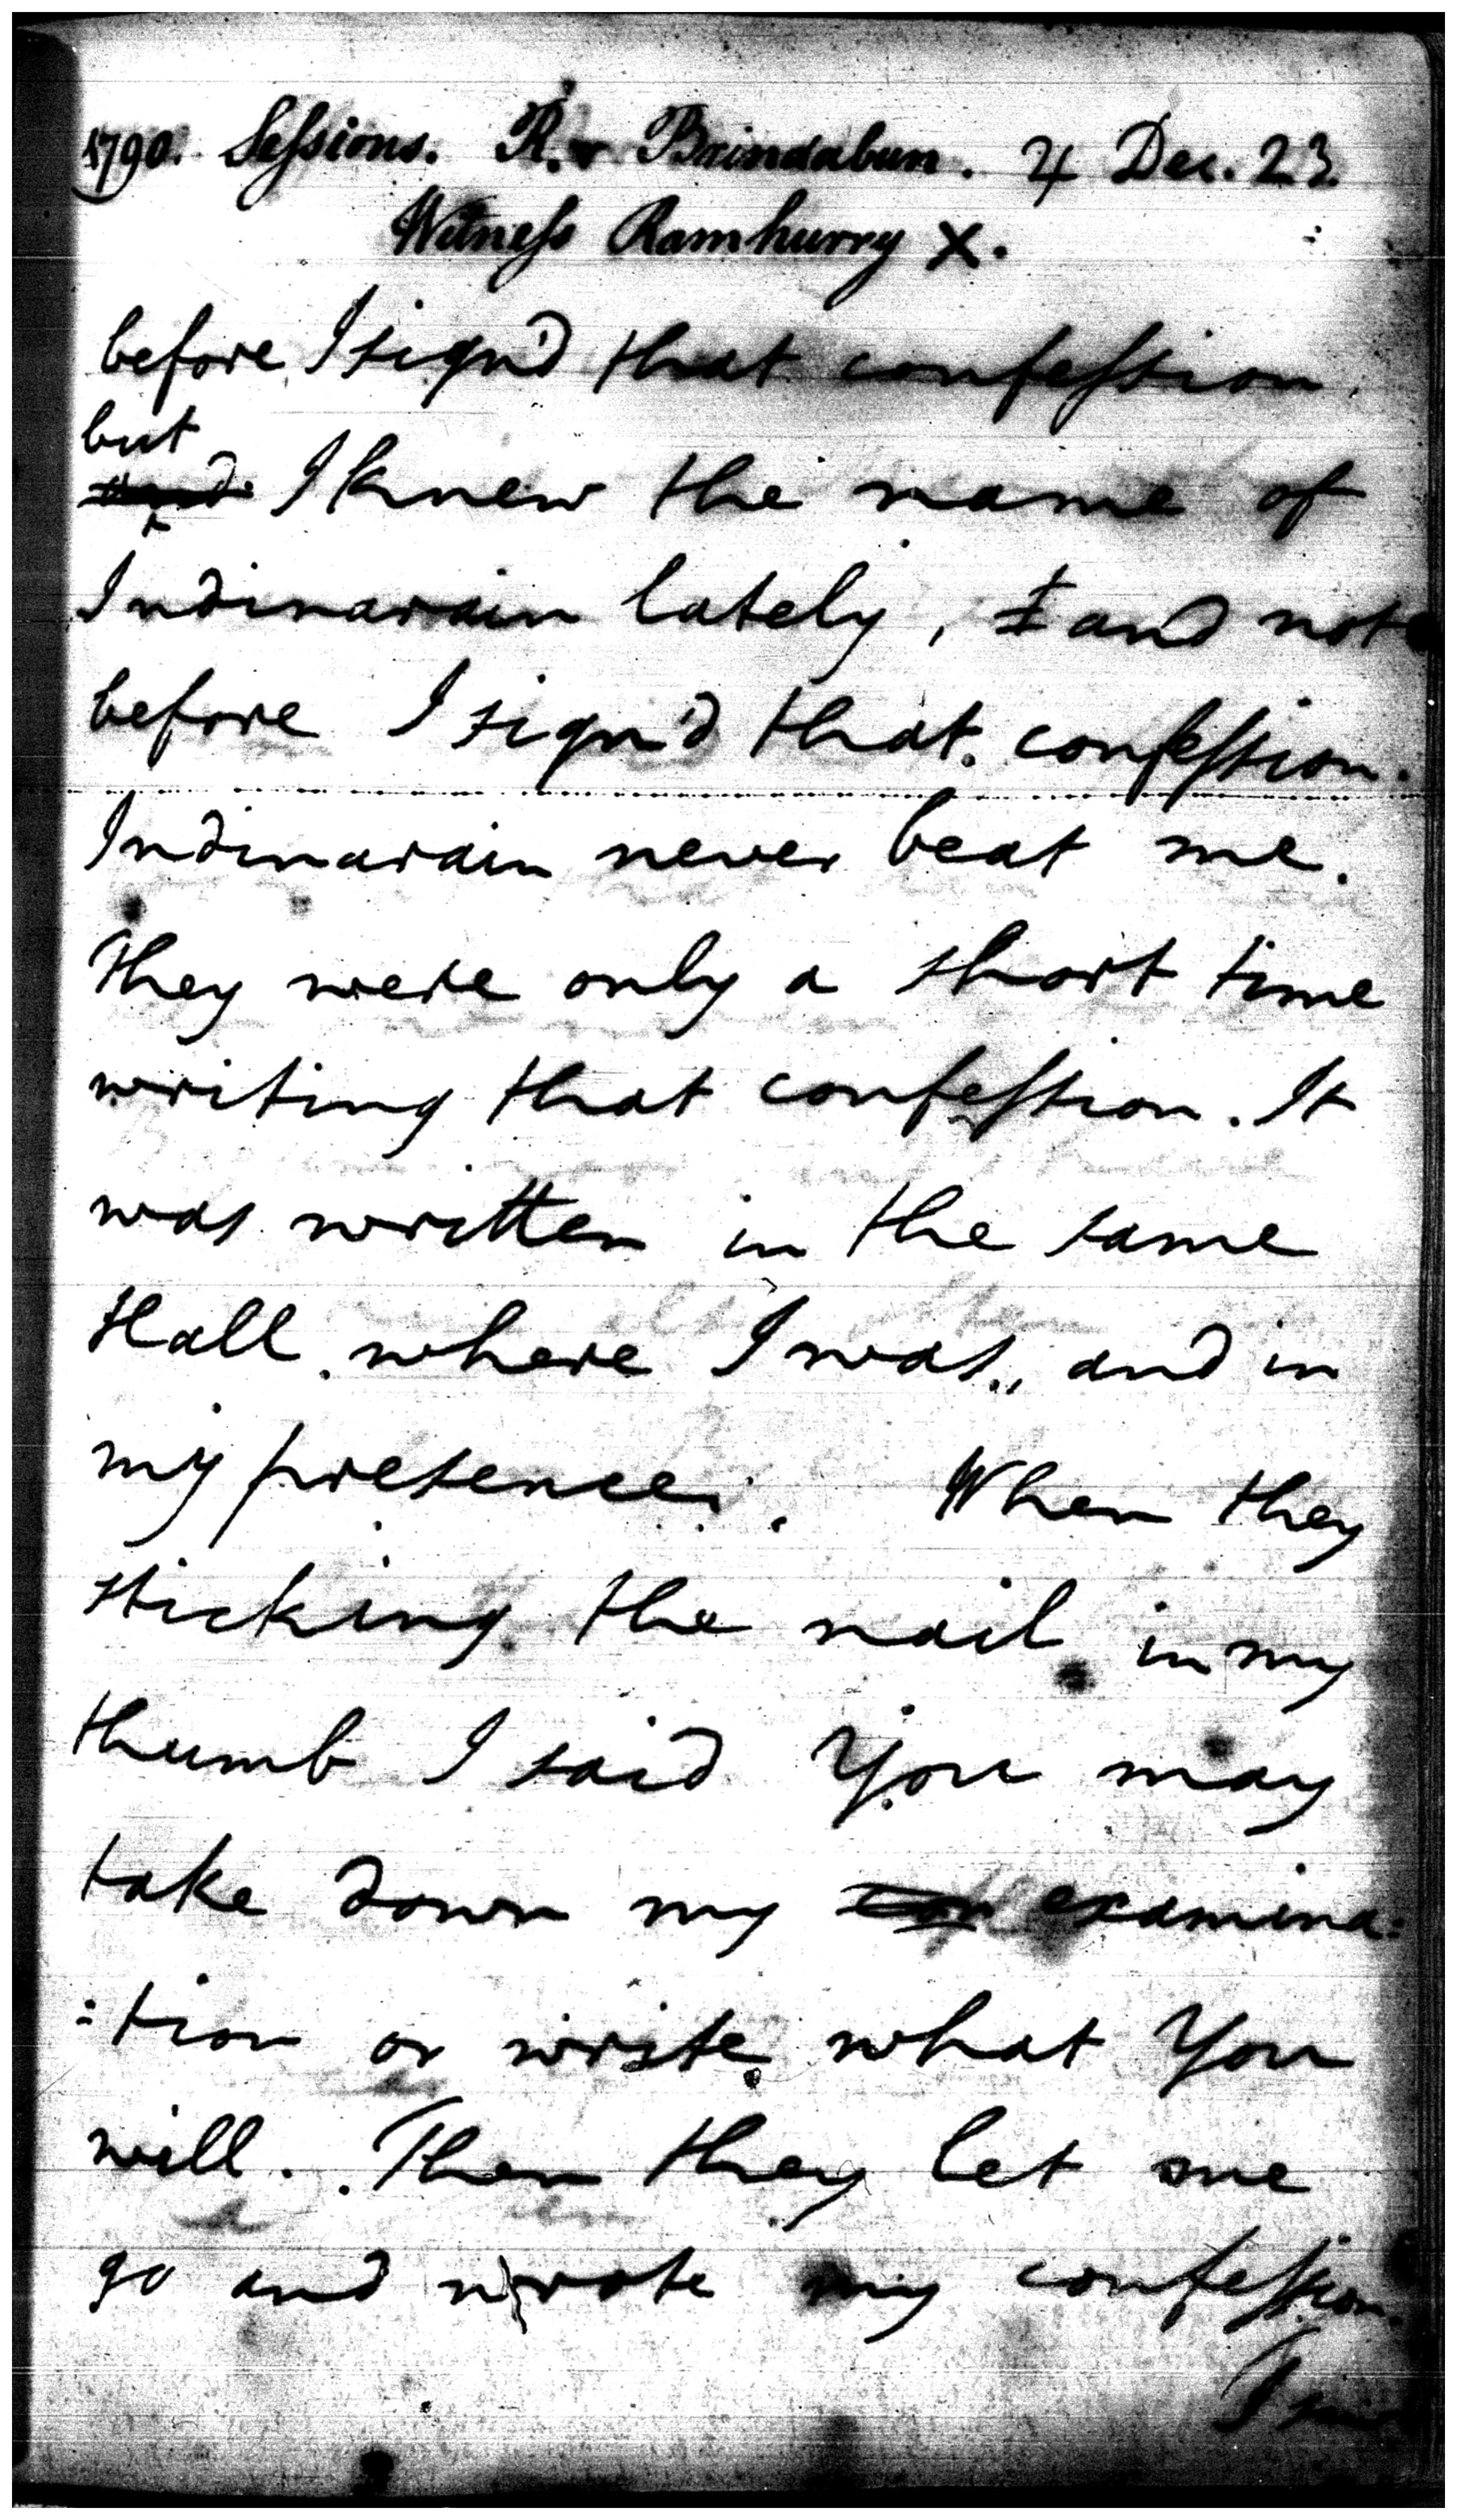 1790. Sessions. R. v Brindabun. ♃ Dec. 23.
Witness Ramhurry X.
before I sign'd that confession.
but
and I knew the name of
Indinarain lately, I and not
before I sign'd that confession.
Indinarain never beat me.
They were only a short time
writing that confession. It
was written in the same
Hall where I was, and in
my presence. When they
sticking the nail in my
thumb I said You may
take down my con examina:
:tion or write what You
will. Then they let me
go and wrote my confession.